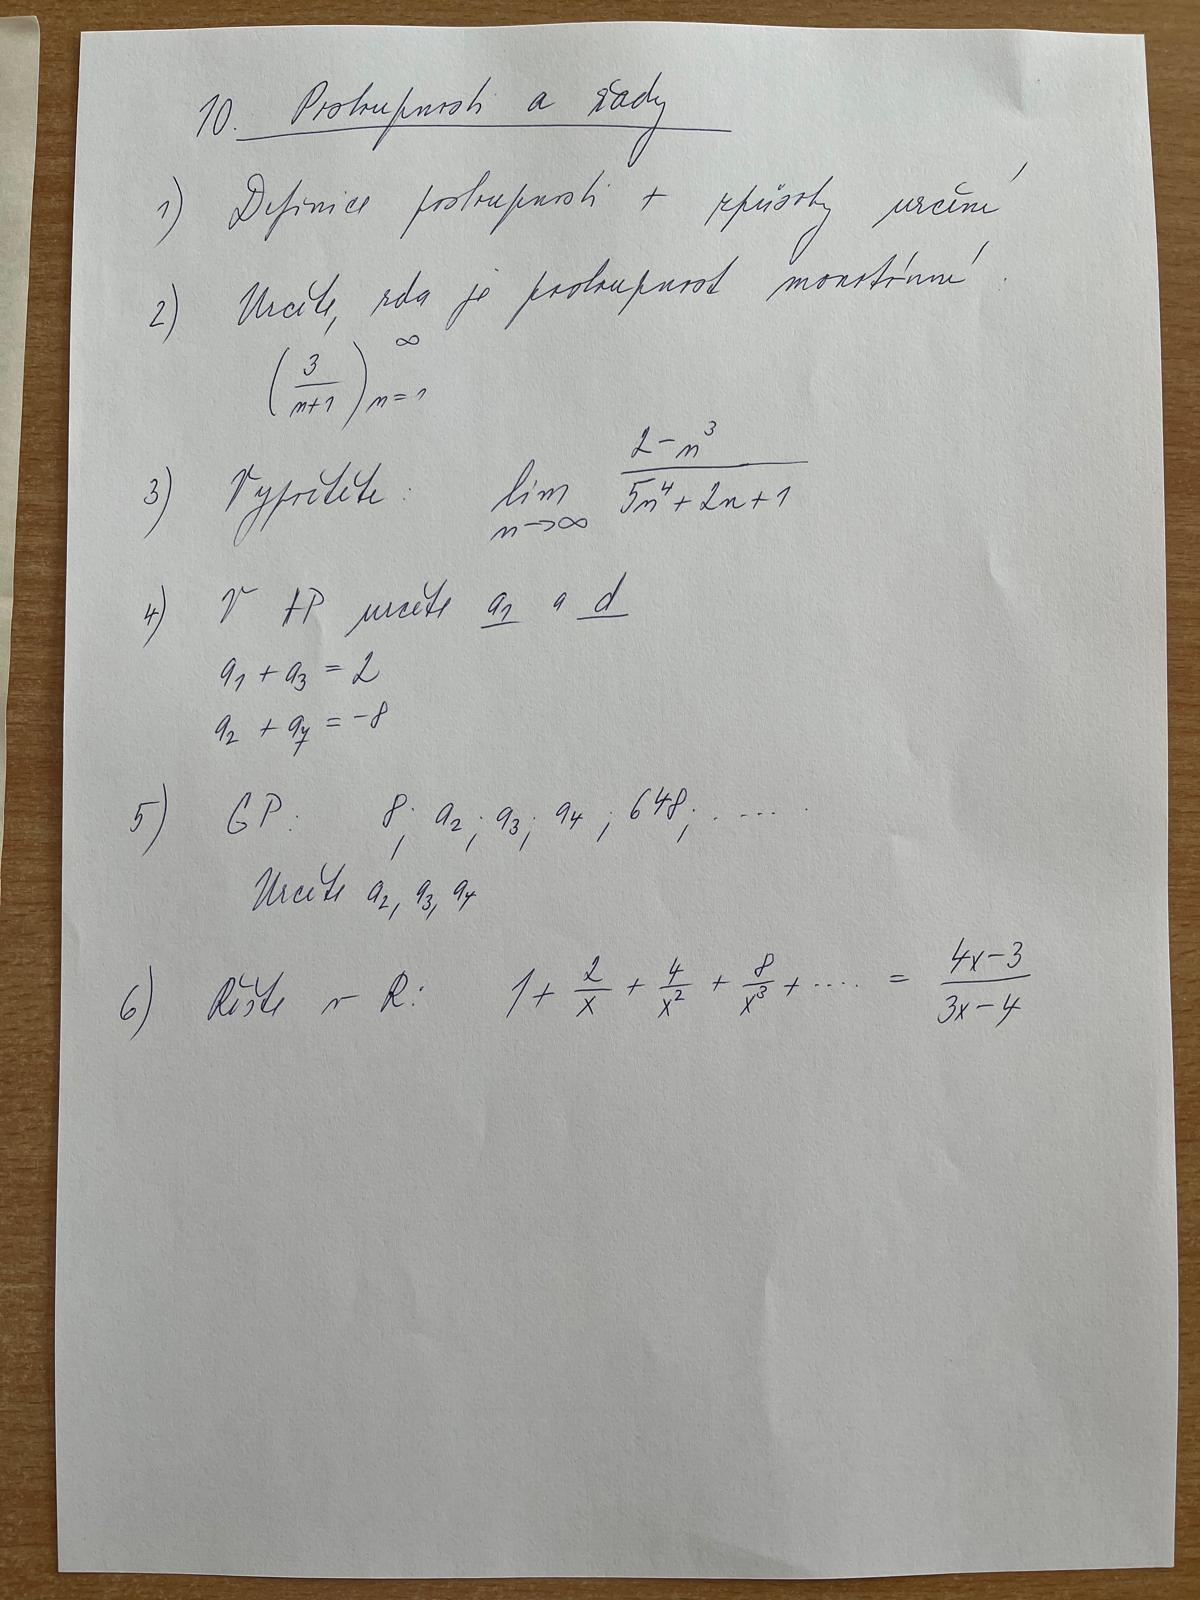 10. Posloupnosti a řady
1) Definice posloupnosti + způsoby určení
2) Určete, zda je posloupnost monotónní.
(3/(n+1))_{n=1}^∞
3) Vypočtěte: lim_{n→∞} (2-n³)/(5n⁴+2n+1)
4) V AP určete a₁ a d
a₁ + a₃ = 2
a₂ + a₄ = -8
5) GP: 8; a₂; a₃; a₄; 648; ....
Určete a₂, a₃, a₄
6) Řešte v R: 1 + 2/x + 4/x² + 8/x³ + .... = (4x-3)/(3x-4)